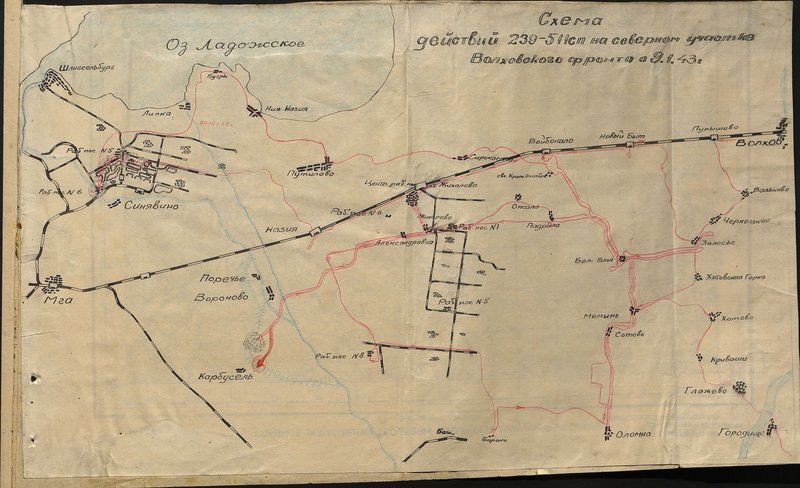 Схема
действий 239-511сп на северном участке
Волховского фронта с 9.1.43г
Оз Ладожское
Шлиссельбург
Бугры
Липка
Ниж Назия
Пупышево
Новый Быт
Войбокало
Волхов
Раб пос N5
Сирокасска
Путилово
Центр. раб.
Жихарево
Вальково
Раб пос N 6
Синявино
Раб пос N 6
Опсала
Падрила
Чернецкое
Назия
Жихарево
Раб пос N1
Александровка
Залесье
Бол. Влоя
Поречье
Вороново
Хотовская Горка
Мга
Раб пос N 5
Мемино
Хотово
Сотово
Раб. пос N 8
Карбусель
Криваши
Глажево
Оломна
Городище
Бараки